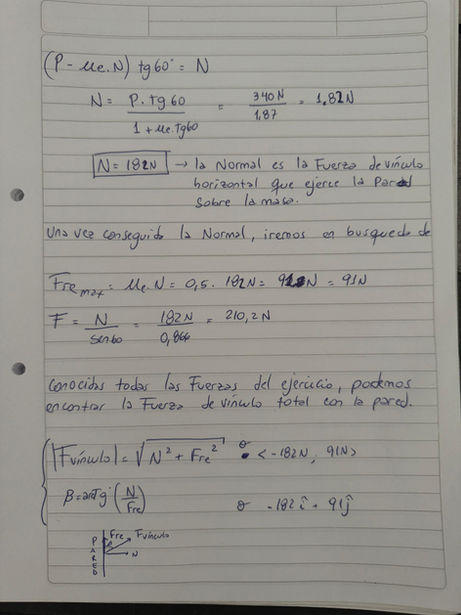 (P - μe.N) tg60° = N
N = P.tg60 / 1 + μe.Tg60 = 340N / 1,87 = 1,82N
N = 182N → la Normal es la Fuerza de vínculo
horizontal que ejerce la Pared
sobre la masa.
Una vez conseguida la Normal, iremos en busqueda de
Fre max = μe.N = 0,5 . 182N = N = 91N
F = N / sen60 = 182N / 0,866 = 210,2N
Conocidas todas las Fuerzas del ejercicio, podemos
encontrar la Fuerza de vínculo total con la pared.
|Fvínculo| = √N² + Fre² o < -182N ; 91N>
β = arcTg (N / Fre) o -182î + 91ĵ
PARED Fre β Fvínculo N